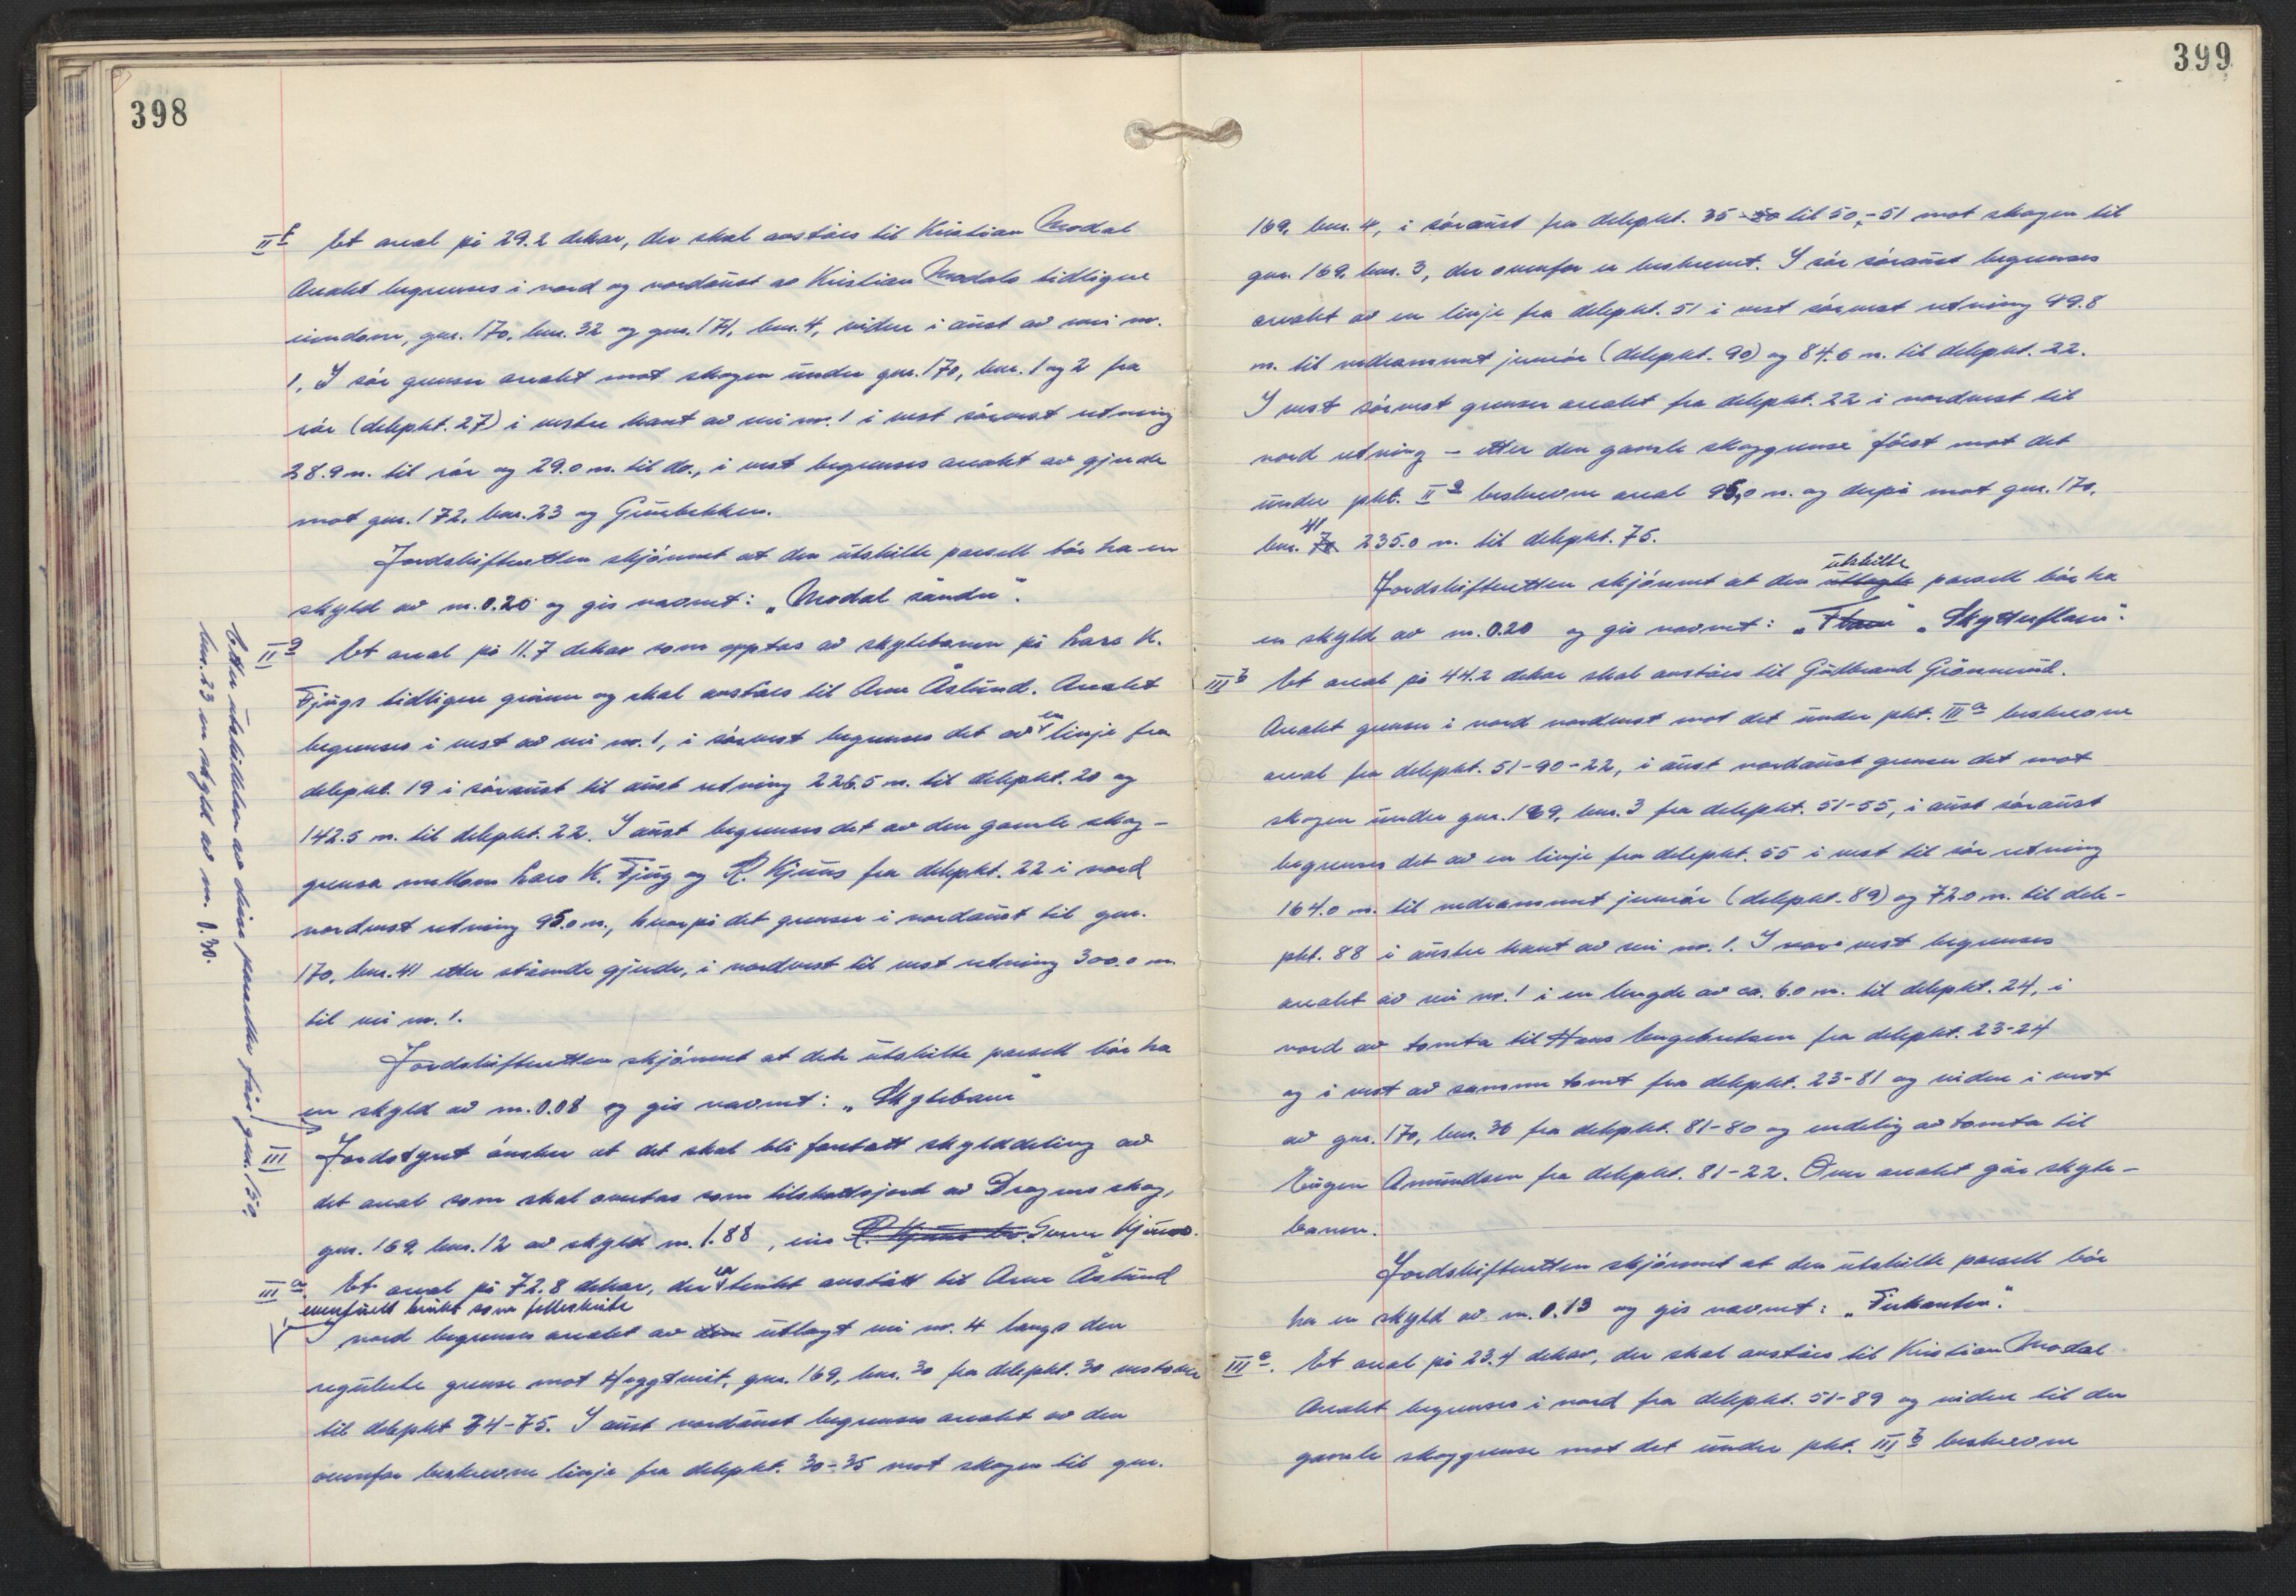 398
II f Et areal på 29.2 dekar, der skal avståes til Kristian Modal
Arealet begrenses i nord og nordaust av Kristian Modals tidligere
eiendom, gnr. 170, bnr. 32 og gnr. 171, bnr. 4, videre i aust av vei nr.
1. I sør grenser arealet mot skogen under gnr. 170, bnr. 1 og 2 fra
rør (delepkt. 27) i vestre kant av vei nr. 1 i vest sørvest retning
38.9 m. til rør og 29.0 m. til do., i vest begrenses arealet av gjerde
mot gnr. 172, bnr. 23 og
Jordskifteretten skjønnet at den utskilte parsell bør ha en
skyld av m. 0.20 og gis navnet: „Modal søndre“.
II g Et areal på 11.7 dekar som opptas av skytebanen på Lars K.
Fjugs tidligere grunn og skal avståes til Arne Åslund. Arealet
begrenses i vest av vei nr. 1, i sørvest begrenses det av en linje fra
delepkt. 19 i søraust til aust retning 226.5 m. til delepkt. 20 og
142.5 m. til delepkt. 22. I aust begrenses det av den gamle skog-
grensa mellom Lars K. Fjug og R. Kjuus fra delepkt. 22 i nord
nordvest retning 95.0 m., hvorpå det grenser i nordaust til gnr.
170, bnr. 41 etter stående gjerde, i nordvest til vest retning 300.0 m.
til vei nr. 1.
Jordskifteretten skjønnet at den utskilte parsell bør ha
en skyld av m. 0.08 og gis navnet: „Skytebane“
Etter utskillelsen av disse parseller får gnr. 170,
bnr. 23 en skyld av m. 1.30.
III Jordstyret ønsker at det skal bli foretatt skylddeling av
det areal som skal overtas som tilskottsjord av Dragens skog,
gnr. 169, bnr. 12 av skyld m. 1.88, eies R. Kjuus Kjuus.
III a. Et areal på 72.8 dekar, der er tenkt avstått til Arne Åslund
eventuelt brukt som fellesbeite
I nord begrenses arealet av den utlagt vei nr. 4 langs den
regulerte grense mot Hoggtveit, gnr. 169, bnr. 30 fra delepkt. 30 vestover
til delepkt 74-75. I aust nordaust begrenses arealet av den
ovenfor beskrevne linje fra delepkt. 30-35 mot skogen til gnr.
399
169, bnr. 4, i søraust fra delepkt. 35-50 til 50,-51 mot skogen til
gnr. 169, bnr. 3, der ovenfor er beskrevet. I sør søraust begrenses
arealet av en linje fra delepkt. 51 i vest sørvest retning 99.8
m. til nedrammet jernrør (delepkt. 90) og 84.6 m. til delepkt. 22.
I vest sørvest grenser arealet fra delepkt. 22 i nordvest til
nord retning - etter den gamle skoggrense først mot det
under pkt. II g beskrevne areal 95,0 m. og derpå mot gnr. 170,
bnr. 70 41 235.0 m. til delepkt. 75.
Jordskifteretten skjønnet at den utlagte utskilte parsell bør ha
en skyld av m. 0.20 og gis navnet: „ “ „Skytterflaen“.
III b Et areal på 44.2 dekar skal avståes til Gulbrand Grønnerud.
Arealet grenser i nord nordvest mot det under pkt. III a beskrevne
areal fra delepkt. 51-90-22, i aust nordaust grenser det mot
skogen under gnr. 169, bnr. 3 fra delepkt. 51-55, i aust søraust
begrenses det av en linje fra delepkt. 55 i vest til sør retning
164.0 m. til nedrammet jernrør (delepkt. 89) og 72.0 m. til dele-
pkt. 88 i austre kant av vei nr. 1. I nord vest begrenses
arealet av vei nr. 1 i en lengde av ca. 6.0 m. til delepkt. 24, i
nord av tomta til Hans Engebretsen fra delepkt. 23-24
og i vest av samme tomt fra delepkt. 23-81 og videre i vest
av gnr. 170, bnr. 36 fra delepkt. 81-80 og endelig av tomta til
Eugen Amundsen fra delepkt. 81-22. Over arealet går skyte-
banen.
Jordskifteretten skjønnet at den utskilte parsell bør
ha en skyld av m. 0.13 og gis navnet: „Firkanten“.
III c. Et areal på 23.4 dekar, der skal avståes til Kristian Modal
Arealet begrenses i nord fra delepkt. 51-89 og videre til den
gamle skoggrense mot det under pkt. III b beskrevne